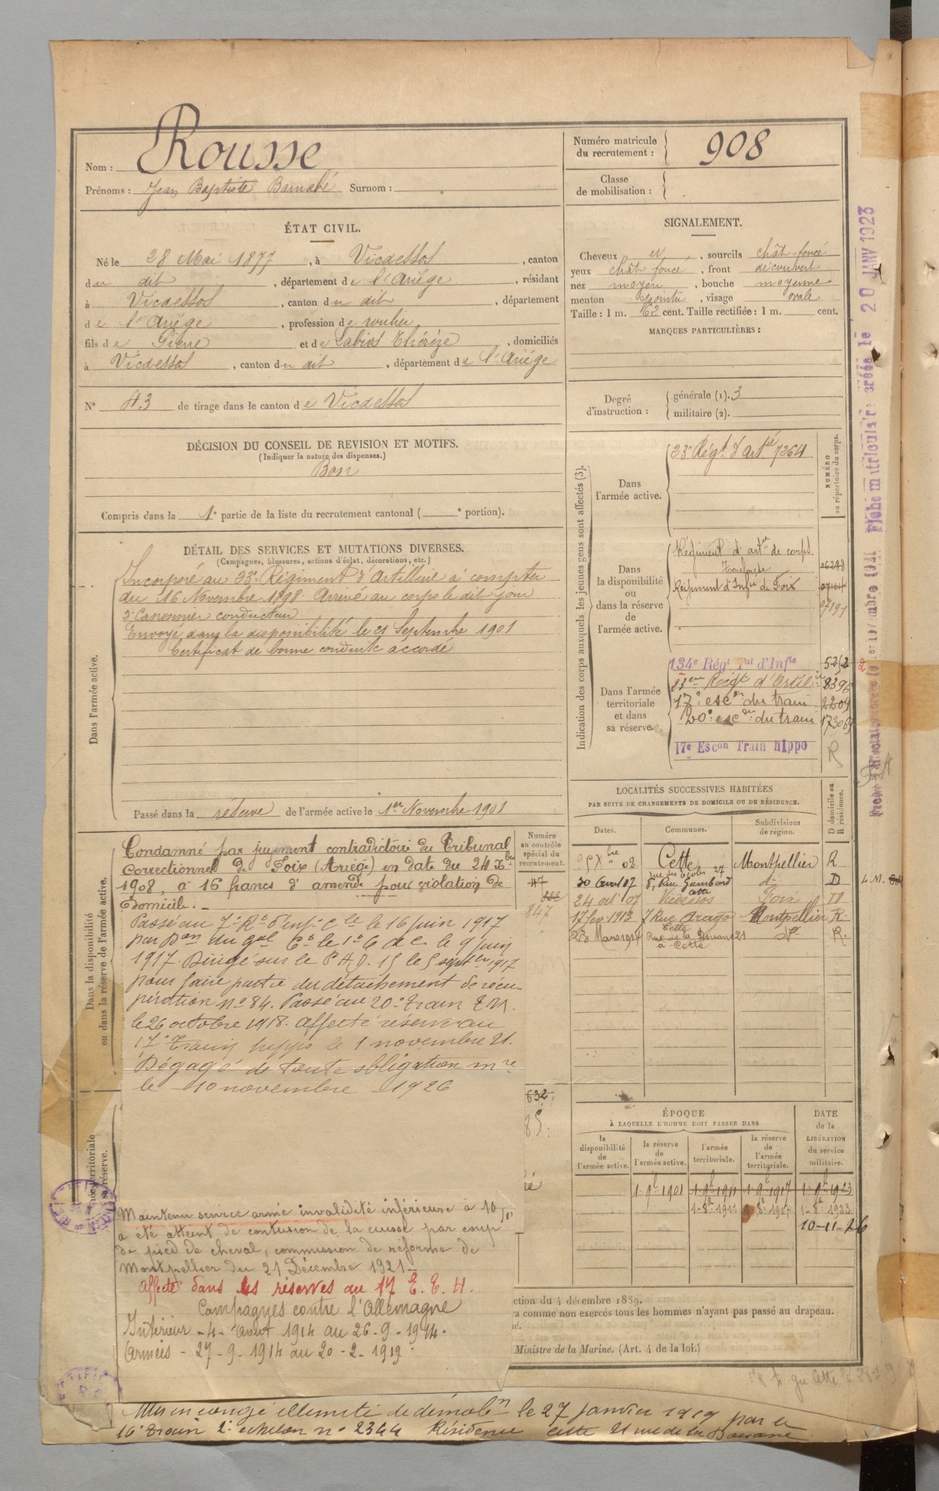 Nom : Rousse
Prénoms : Jean Baptiste Barnabé Surnom :
Numéro matricule du recrutement : 908
Classe de mobilisation :
ÉTAT CIVIL.
Né le 28 Mai 1877, à Vicdessos, canton
du dit, département de l'Ariège, résidant
à Vicdessos, canton du dit, département
de l'Ariège, profession de roulier
fils de Pierre et de Thérèze, domiciliés
à Vicdessos, canton du dit, département de l'Ariège
N° 43 de tirage dans le canton de Vicdessos
SIGNALEMENT.
Cheveux et, sourcils chât foncé
yeux chât foncé, front découvert
nez moyen, bouche moyenne
menton, visage ovale
Taille : 1 m. 62 cent. Taille rectifiée : 1 m. cent.
MARQUES PARTICULIÈRES :
Degré d'instruction : générale (1). 3
militaire (2).
DÉCISION DU CONSEIL DE REVISION ET MOTIFS.
(Indiquer la nature des dispenses.)
Bon
Compris dans la 1e partie de la liste du recrutement cantonal ( e portion).
DÉTAIL DES SERVICES ET MUTATIONS DIVERSES.
(Campagnes, blessures, actions d'éclat, décorations, etc.)
Dans l'armée active.
Incorporé au 33e Régiment d'Artillerie à compter
du 16 Novembre 1898 Arrivé au corps le dit jour
2e Canonnier conducteur
Envoyé dans la disponibilité le 21 Septembre 1901
Certificat de bonne conduite accordé
Passé dans la réserve de l'armée active le 1er Novembre 1901
Indication des corps auxquels les jeunes gens sont affectés (3).
NUMÉRO au répertoire du corps.
Dans l'armée active.
33e Régt d'artie 7364
Dans la disponibilité ou dans la réserve de l'armée active.
Régiment d'artie de corps
Régiment d'Infie de Foix
Dans l'armée territoriale et dans sa réserve.
134e Régt d'Infie
Régt d'Artil
17e escon du train
20e escon du train
17e Escon Train hippo R
LOCALITÉS SUCCESSIVES HABITÉES
PAR SUITE DE CHANGEMENTS DE DOMICILE OU DE RÉSIDENCE.
Dates. Communes. Subdivisions de région. D domicile ou R résidence.
Xbre 02 Cette Montpellier R
30 Avril 07 8, Rue Gambord Cette di D
24 oct 07 Vicdessos Foix D
1913 7 Rue Arago Cette Montpellier R
23 Mars 1917 Rue de la Douane 21 à Cette do R.
Numéro au contrôle spécial du recrutement.
847
Dans la disponibilité ou dans la réserve de l'armée active.
Condamné par jugement contradictoire du Tribunal
Correctionnel de Foix (Ariège) en date du 24 Xbre
1908, à 16 francs d'amende pour violation de
domicile.
Passé au 7e Rt d'Infie Cle le 16 juin 1917
par Don du gal Ct le 1er C de C. le 9 juin
1917. Dirigé sur le P.A.D. 15 le 5 septbre 1917
pour faire partie du détachement de récu-
pération no 84. Passé au 20e train E.M.
le 26 octobre 1918. affecté réserve au
17e Train hippo le 1 novembre 21.
Dégagé de toute obligation mre
le 10 novembre 1926
ÉPOQUE
À LAQUELLE L'HOMME DOIT PASSER DANS
la disponibilité de l'armée active. la réserve de l'armée active. l'armée territoriale. la réserve de l'armée territoriale.
DATE de la LIBÉRATION du service militaire.
1-9e 1901 1-9e 1911 1-9e 1917 1-9e 1923
10-11-26
Maintenu service armé invalidité inférieure à 10 %
a été atteint de contusion de la cuisse par coup
de pied de cheval, commission de réforme de
Montpellier du 21 Décembre 1921.
affecté dans les réserves au 17 E. T. H.
Campagnes contre l'Allemagne
Intérieur - 4 - aout 1914 au 26-9-1914.
Armées - 27-9-1914 au 20-2-1919.
ction du 4 décembre 1889.
a comme non exercés tous les hommes n'ayant pas passé au drapeau.
Ministre de la Marine. (Art. 4 de la loi.)
Mis en congé illimité de démobon le 27 janvier 1919 par le
16e train 2e échelon no 2344 Résidence Cette 21 rue de la Douane
20 JANV 1923